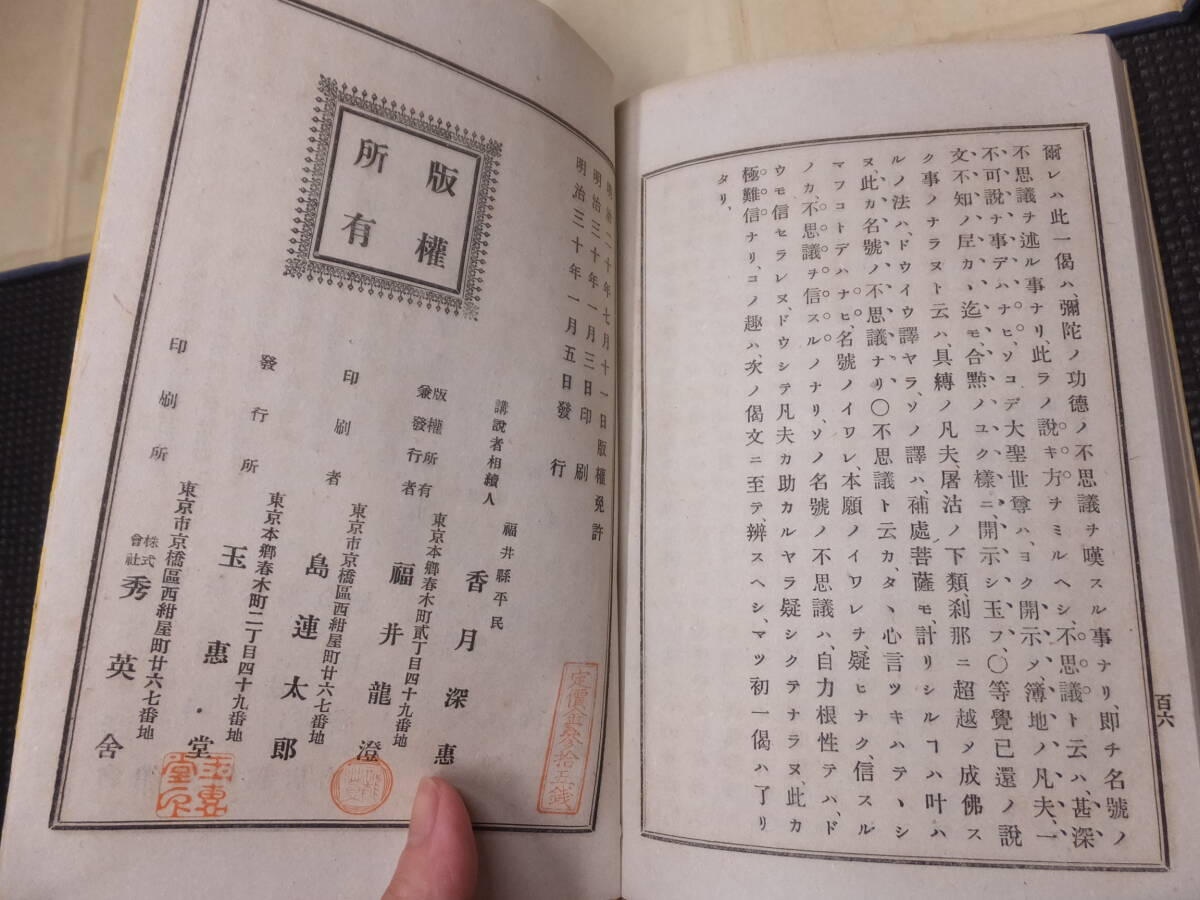 爾レハ此一偈ハ、彌陀ノ功德ノ不思議ヲ嘆スル事ナリ、卽チ名號ノ
不思議ヲ述ル事ナリ、此ラノ說キ方ヲミルヘシ、不思議ト云ハ、甚深
不可說ナ事デハナヒ、ソコデ大聖世尊ハ、ヨク開示ノ、簿地ノ凡夫、一
文不知ノ屋カヽ迄モ、合㸃ノユク樣ニ、開示シ玉フ、〇等覺已還ノ說
ク事ノナラヌト云ハ、具縛ノ凡夫、屠沽ノ下類、刹那ニ超越ノ成佛ス
ルノ法ハ、ドウイウ譯ヤラ、ソノ譯ハ、補處菩薩モ、計リシルヿハ叶ハ
ヌ、此カ名號ノ不思議ナリ〇不思議ト云カ、タヽ心言ツキハラヽシ
マフコトデハナヒ、名號ノイワレ、本願ノイワレヲ、疑ヒナク、信スル
ノカ、不思議ヲ信スルノナリ、ソノ名號ノ不思議ハ、自力根性テハ、ド
ウモ信セラレヌ、ドウシテ凡夫カ助カルヤラ疑シクテナラヌ、此カ
極難信ナリ、コノ趣ハ、次ノ偈文ニ至テ、辨スヘシ、マツ初一偈ハ了リ
タリ、
百六
明治二十年七月十一日版權免許
明治三十年一月三日印刷
明治三十年一月五日發行
版權
所有
講說者相續人
福井縣平民
香月深惠
版權所有
兼發行者
東京本鄕春木町貳丁目四十九番地
福井龍澄
印刷者
東京市京橋區西紺屋町廿六七番地
島連太郎
發行所
東京本鄕春木町二丁目四十九番地
玉惠堂
印刷所
東京市京橋區西紺屋町廿六七番地
株式
會社
秀英舍
定價金參拾五錢
玉惠
堂印